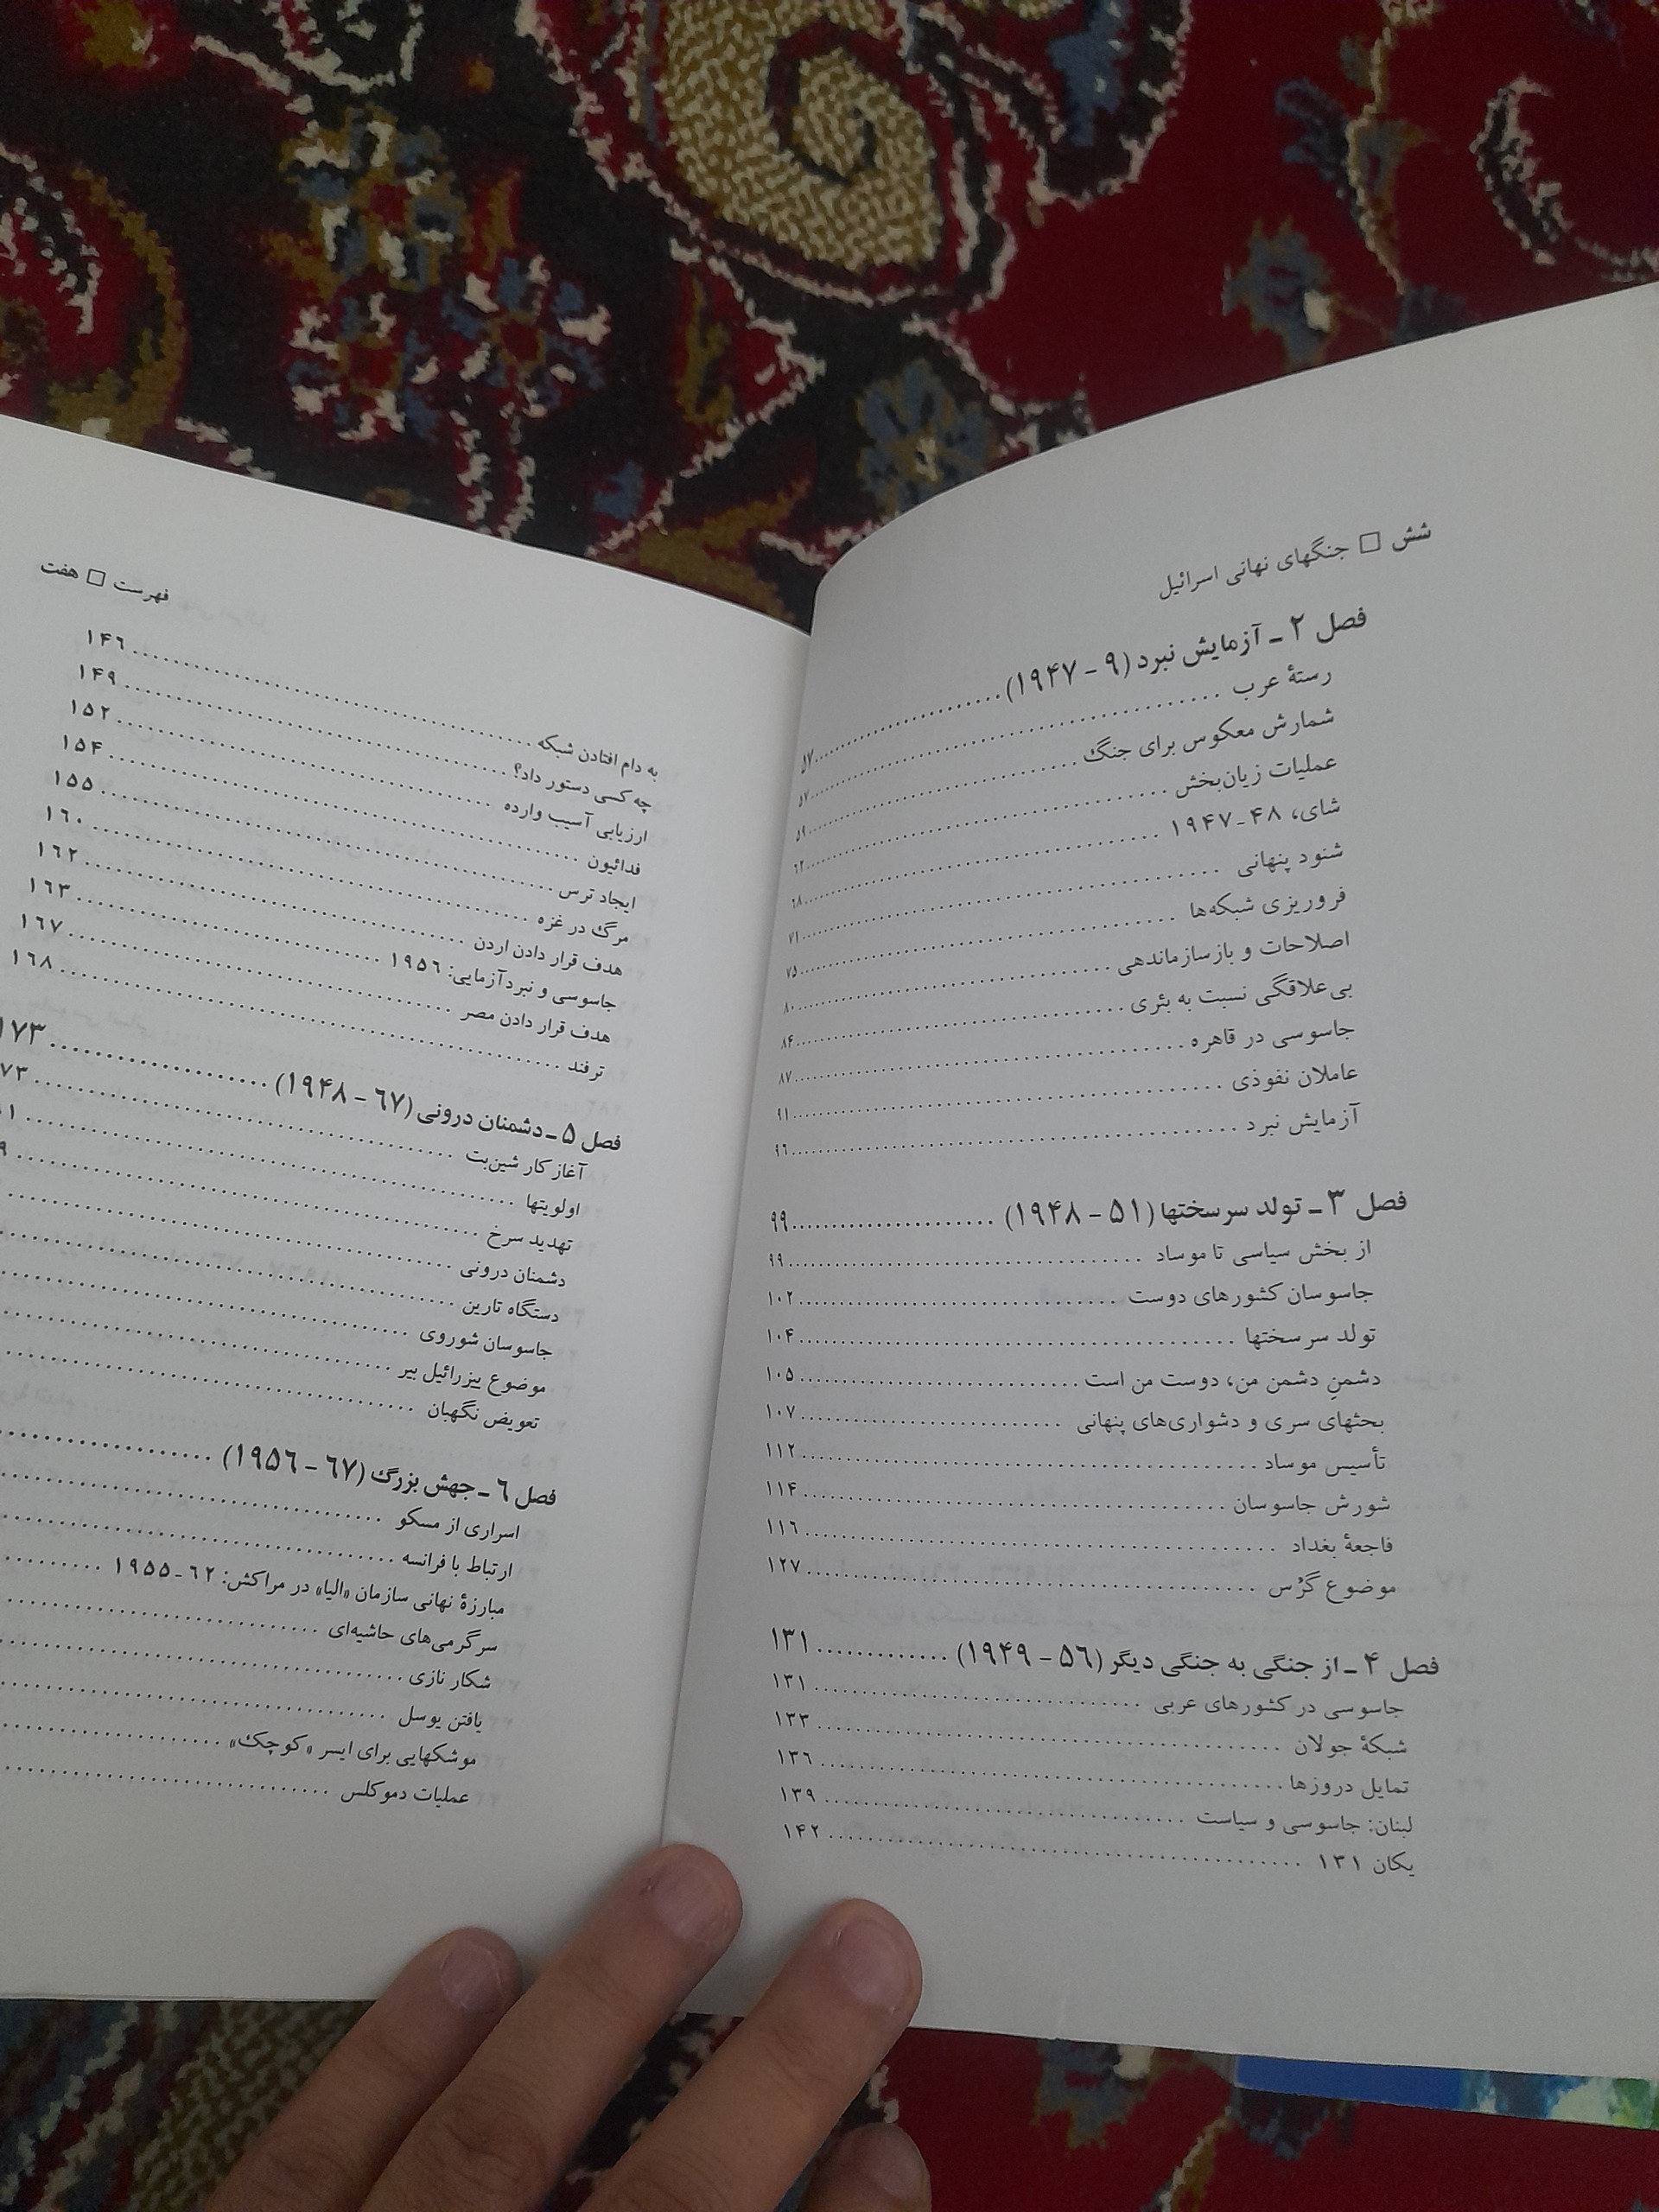 شش □ جنگهای نهانی اسرائیل
فصل ۲ ـ آزمایش نبرد (۹ - ۱۹۴۷) .......... ۵۷
رستهٔ عرب .......... ۵۷
شمارش معکوس برای جنگ .......... ۵۹
عملیات زیان‌بخش .......... ۶۲
شای، ۴۸-۱۹۴۷ .......... ۶۸
شنود پنهانی .......... ۷۱
فروریزی شبکه‌ها .......... ۷۵
اصلاحات و بازسازماندهی .......... ۸۰
بی‌علاقگی نسبت به بئری .......... ۸۴
جاسوسی در قاهره .......... ۸۷
عاملان نفوذی .......... ۹۱
آزمایش نبرد .......... ۹۶
فصل ۳ ـ تولد سرسختها (۵۱ - ۱۹۴۸) .......... ۹۹
از بخش سیاسی تا موساد .......... ۹۹
جاسوسان کشورهای دوست .......... ۱۰۲
تولد سرسختها .......... ۱۰۴
دشمنِ دشمن من، دوست من است .......... ۱۰۵
بحثهای سری و دشواری‌های پنهانی .......... ۱۰۷
تأسیس موساد .......... ۱۱۲
شورش جاسوسان .......... ۱۱۴
فاجعهٔ بغداد .......... ۱۱۶
موضوع گرُس .......... ۱۲۷
فصل ۴ ـ از جنگی به جنگی دیگر (۵۶ - ۱۹۴۹) .......... ۱۳۱
جاسوسی در کشورهای عربی .......... ۱۳۱
شبکهٔ جولان .......... ۱۳۳
تمایل دروزها .......... ۱۳۶
لبنان: جاسوسی و سیاست .......... ۱۳۹
یکان ۱۳۱ .......... ۱۴۲
فهرست □ هفت
به دام افتادن شبکه .......... ۱۴۶
چه کسی دستور داد؟ .......... ۱۴۹
ارزیابی آسیب وارده .......... ۱۵۲
فدائیون .......... ۱۵۴
ایجاد ترس .......... ۱۵۵
مرگ در غزه .......... ۱۶۰
هدف قرار دادن اردن .......... ۱۶۲
جاسوسی و نبردآزمایی: ۱۹۵۶ .......... ۱۶۳
هدف قرار دادن مصر .......... ۱۶۷
ترفند .......... ۱۶۸
فصل ۵ ـ دشمنان درونی (۶۷ - ۱۹۴۸) .......... ۱۷۳
آغاز کار شین‌بت ..........
اولویتها ..........
تهدید سرخ ..........
دشمنان درونی ..........
دستگاه تارین ..........
جاسوسان شوروی ..........
موضوع ییزرائیل بیر ..........
تعویض نگهبان ..........
فصل ۶ ـ جهش بزرگ (۶۷ - ۱۹۵۶) ..........
اسراری از مسکو ..........
ارتباط با فرانسه ..........
مبارزهٔ نهانی سازمان «الیا» در مراکش: ۶۲-۱۹۵۵ ..........
سرگرمی‌های حاشیه‌ای ..........
شکار نازی ..........
یافتن یوسل ..........
موشکهایی برای ایسر «کوچک» ..........
عملیات دموکلس ..........